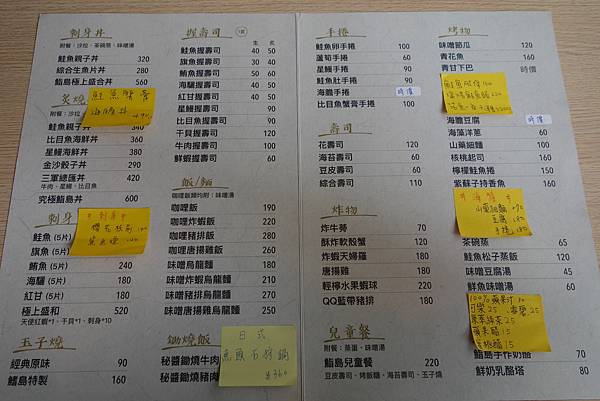 刺身丼
附餐：沙拉、茶碗蒸、味噌湯
鮭魚親子丼 320
綜合生魚片丼 280
鮨島極上盛合丼 560
炙燒
鮭魚蟹膏
海膽丼
490
附餐：沙
鮭魚親子丼 340
比目魚海鮮丼 340
星鰻海鮮丼 380
金沙骰子丼 290
三軍總匯丼 420
牛肉、星鰻、比目魚
究極鮨島丼 600
刺身
鮭魚 (5片)
旗魚 (5片)
鮪魚 (5片) 240
海鱺 (5片) 180
紅甘 (5片) 180
極上盛和 520
天使紅蝦*1、干貝*1、刺身*10
玉子燒
經典原味 90
鮨島特製 160
握壽司 1貫
生 炙
鮭魚握壽司 40 50
旗魚握壽司 30 40
鮪魚握壽司 50 60
海鱺握壽司 40 50
紅甘握壽司 40 50
星鰻握壽司 90
比目魚握壽司 90
干貝握壽司 120
牛肉握壽司 100
鮮蝦握壽司 60
飯/麵
咖哩飯類均附：味噌湯
咖哩飯 190
咖哩炸蝦飯 350
咖哩豬排飯 280
咖哩唐揚雞飯 260
味噌烏龍麵 180
味噌炸蝦烏龍麵 210
味噌豬排烏龍麵 270
味噌唐揚雞烏龍麵 250
鋤燒飯
秘醬鋤燒牛肉
秘醬鋤燒豬肉
日式
魚頭石狩鍋
$360
手捲
鮭魚卵手捲 100
蘆筍手捲 60
星鰻手捲 90
鮭魚肚手捲 60
海膽手捲 時價
比目魚蟹膏手捲 100
壽司
花壽司 120
海苔壽司 60
豆皮壽司 60
綜合壽司 110
炸物
炸牛蒡 70
酥炸軟殼蟹 120
炸蝦天婦羅 180
唐揚雞 120
輕檸水果蝦球 220
QQ藍帶豬排 180
兒童餐
附餐：蒸蛋、味噌湯
鮨島兒童餐 220
豆皮壽司、烤飯糰、海苔壽司、玉子燒
烤物
味噌節瓜 120
青花魚 160
青甘下巴 時價
海膽豆腐 時價
海藻洋蔥 60
山藥細麵 100
核桃起司 160
檸檬鮭魚捲 150
紫蘇子持香魚 160
*海膽*
山藥細麵
豆腐
手捲
茶碗蒸 65
鮭魚松子蒸飯 120
味噌豆腐湯 45
鮮魚味噌湯 60
100%蘋果汁
可樂 25
雪碧 25
蘋果醋 15
鮨島手作奶酪 70
鮮奶乳酪塔 80